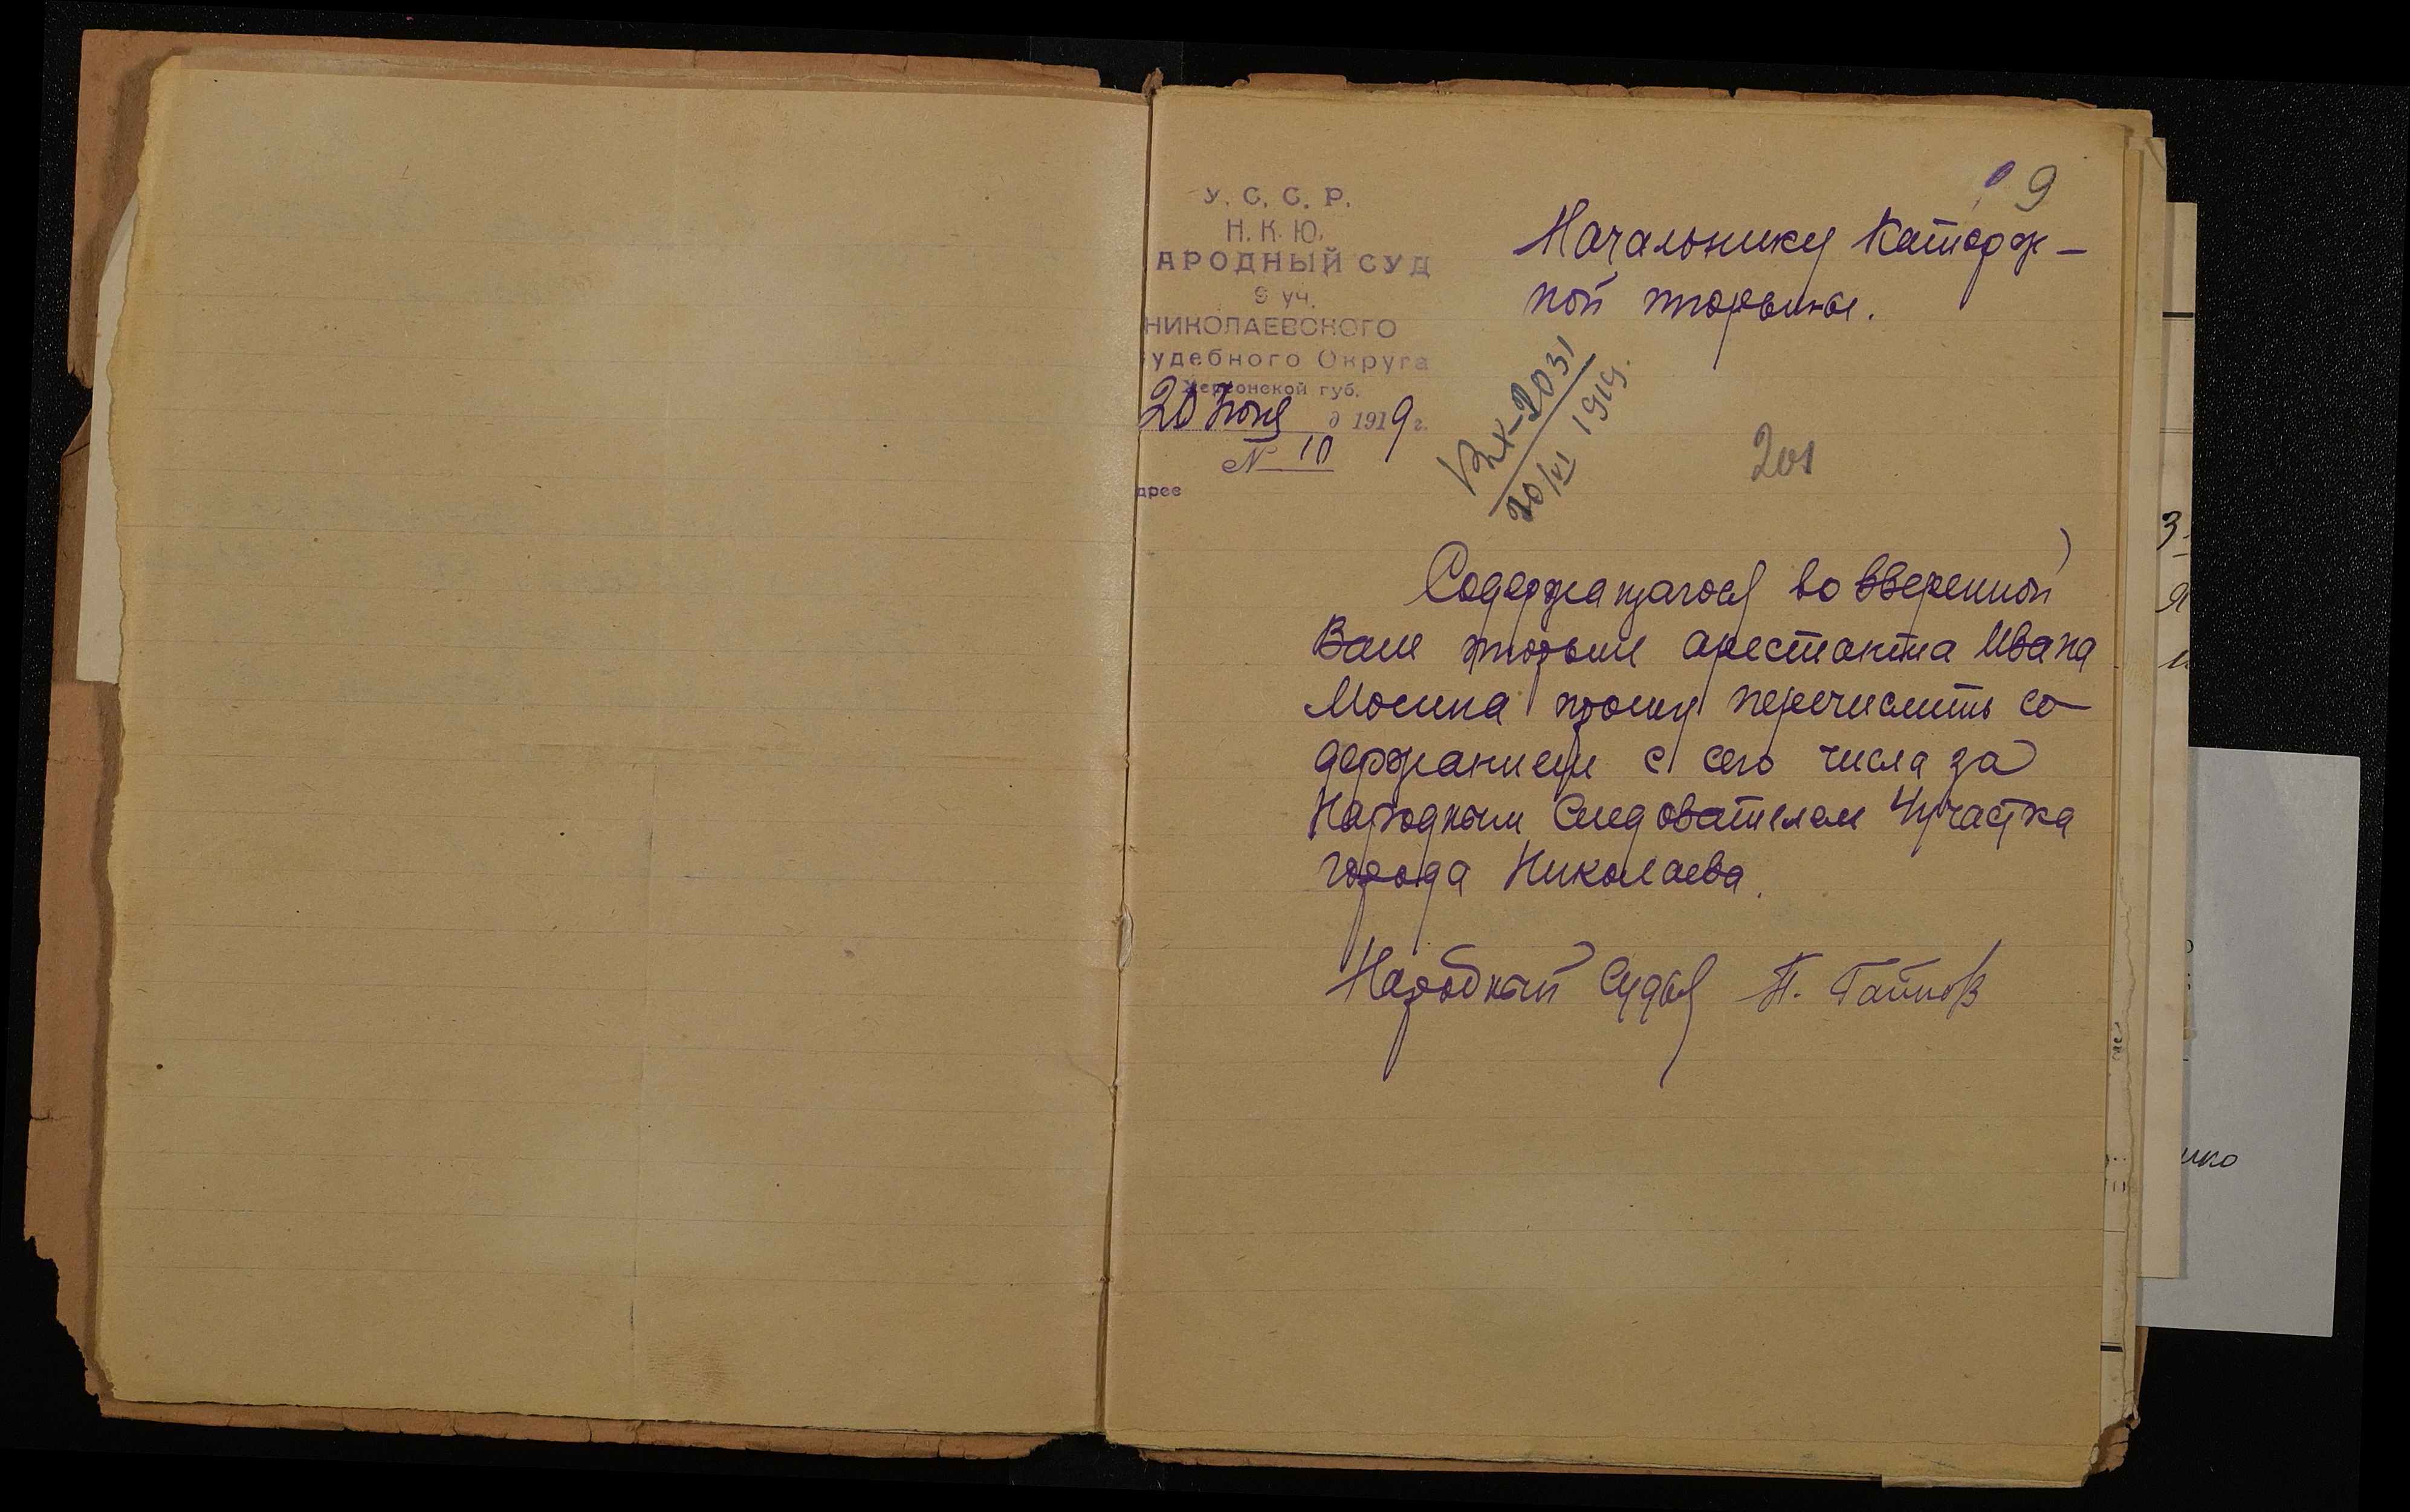 9
У. С. С. Р.
Н. К. Ю.
АРОДНЫЙ СУД
9 уч.
НИКОЛАЕВСКОГО
удебного Округа
Херсонской губ.
20 Июня д 1919 г.
N 10
дрес
Начальнику Каторж-
ной тюрьмы.
Вх-2031
20/VI 1919.
201
Содержащагося во вверенной
Вам тюрьме арестанта Ивана
Мосина прошу перечислить со-
держанием с сего числа за
Народным Следователем 4 участка
города Николаева.
Народный Судья П.